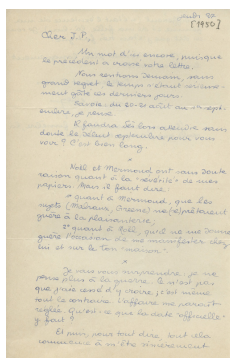 [1980]
Cher J.P.,
Un mot d'ici encore, puisque
le précédent a croisé votre lettre.
Nous rentrons demain, sans
grand regret, le temps s'étant
gâté ces derniers jours.
Savoie: du 20-21 août au
je pense.
Il faudra dès lors attendre sans
doute le début septembre pour vous
voir? C'est bien long.
*
Kall et Mermoud ont sans doute
raison quant à la "sévérité" de mes
papiers. Mais il faut dire:
1° quant à Mermoud, que les
sujets (Malraux, ) ne (se) prêtaient
guère à la plaisanterie;
2° quant à Kall, qu'il ne me donne
guère l'occasion de me manifester chez
lui et sur le ton "mineur".
*
Je vais vous surprendre: je ne
pense plus à la guerre. Ce n'est pas
que j'aie cessé d'y croire, c'est même
tout le contraire. L'affaire me paraît
réglée. Qu'est-ce que la date "officielle"
y fait?
Et puis, pour tout dire, tout cela
commence à m'être sincèrement